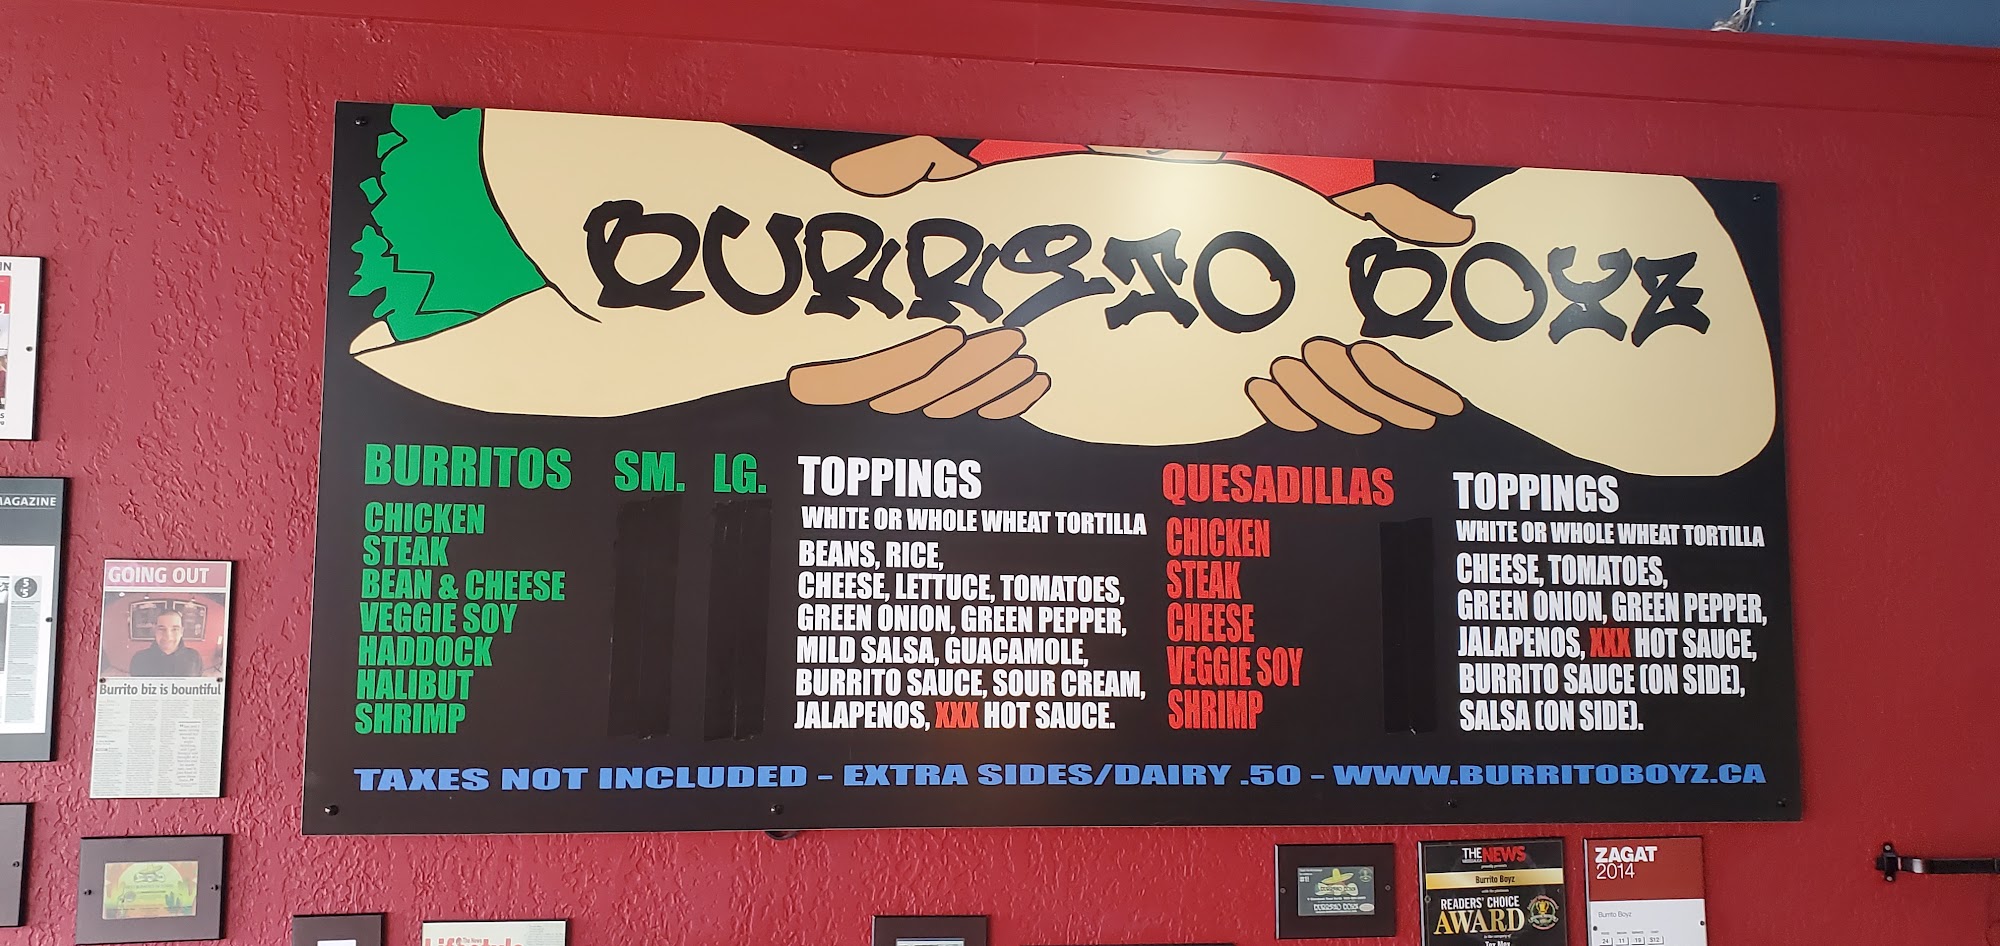 BURRITO BOYZ
BURRITOS SM. LG.
CHICKEN
STEAK
BEAN & CHEESE
VEGGIE SOY
HADDOCK
HALIBUT
SHRIMP
TOPPINGS
WHITE OR WHOLE WHEAT TORTILLA
BEANS, RICE,
CHEESE, LETTUCE, TOMATOES,
GREEN ONION, GREEN PEPPER,
MILD SALSA, GUACAMOLE,
BURRITO SAUCE, SOUR CREAM,
JALAPENOS, XXX HOT SAUCE.
QUESADILLAS
CHICKEN
STEAK
CHEESE
VEGGIE SOY
SHRIMP
TOPPINGS
WHITE OR WHOLE WHEAT TORTILLA
CHEESE, TOMATOES,
GREEN ONION, GREEN PEPPER,
JALAPENOS, XXX HOT SAUCE,
BURRITO SAUCE (ON SIDE),
SALSA (ON SIDE).
TAXES NOT INCLUDED - EXTRA SIDES/DAIRY .50 - WWW.BURRITOBOYZ.CA
MAGAZINE
GOING OUT
Burrito biz is bountiful
BURRITO BOYZ
THE NEWS
Burrito Boyz
READERS' CHOICE
AWARD
Tex Mex
ZAGAT
2014
Burrito Boyz
24 11 19 $12